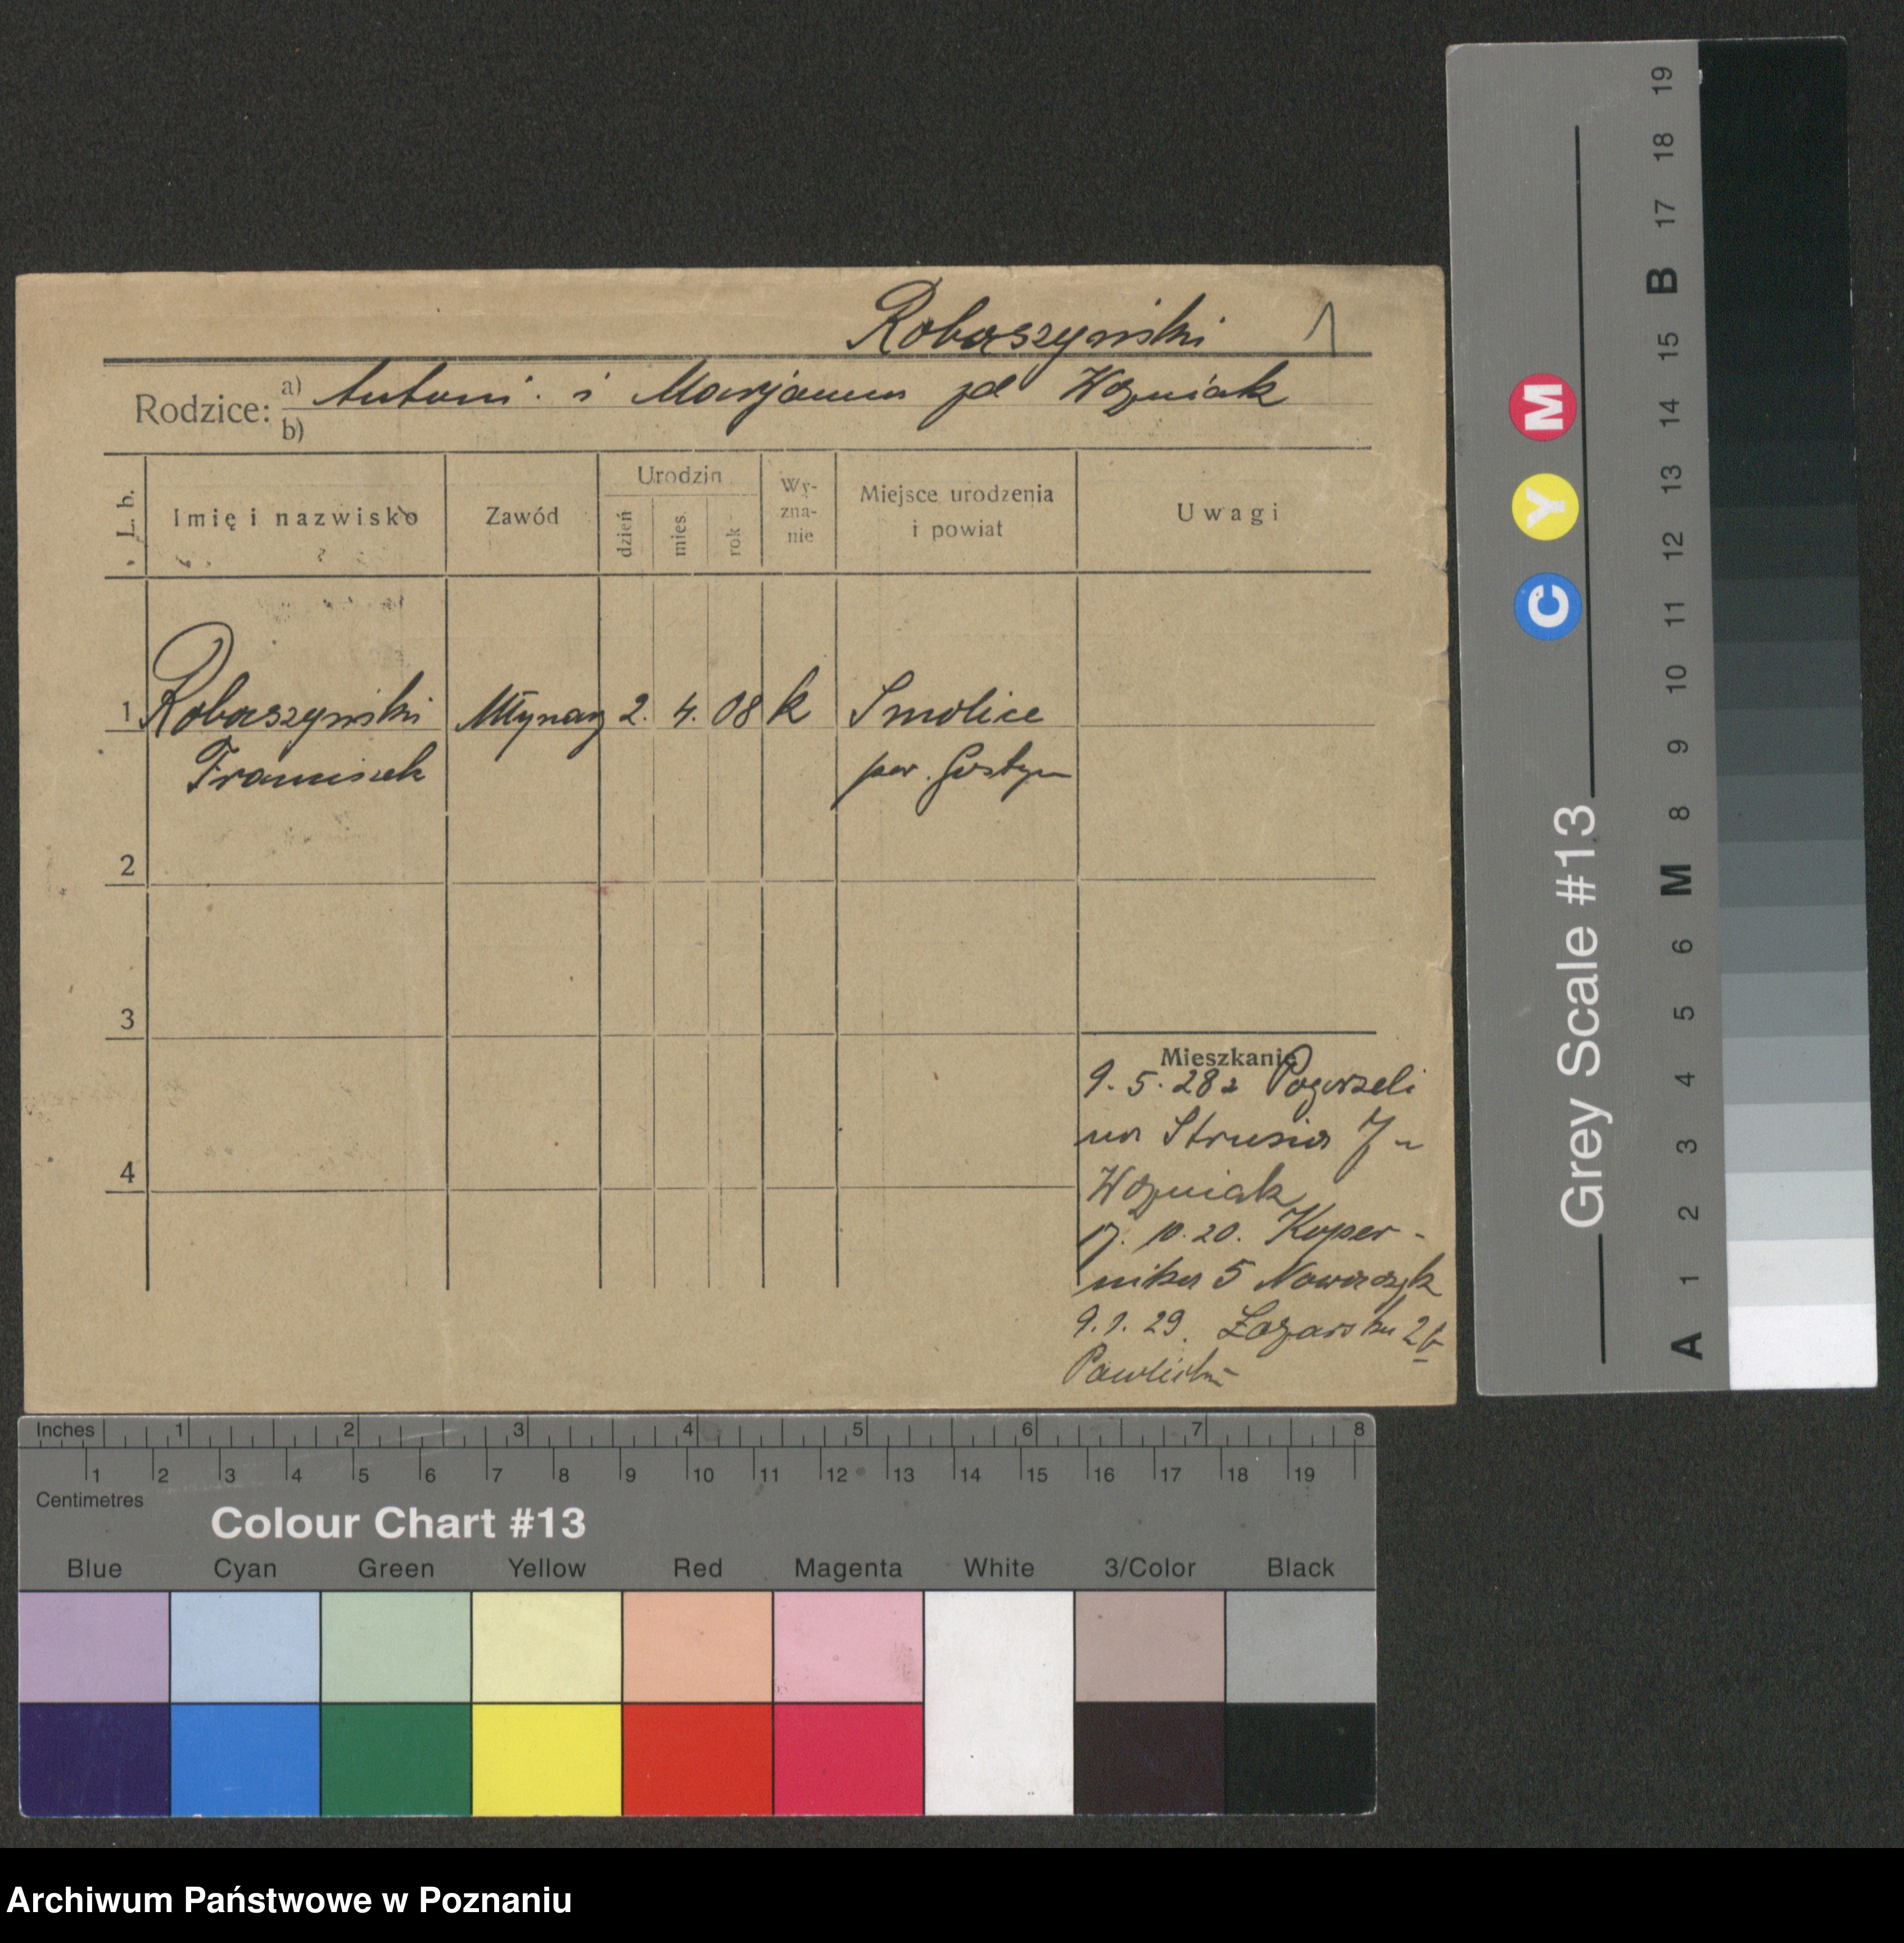 Robaszyński 1
Rodzice: a) Antoni i Marjanna zd Woźniak
b)
L. b. Imię i nazwisko Zawód Urodzin dzień mies. rok Wy-zna-nie Miejsce urodzenia i powiat Uwagi
1 Robaszyński Młynarz 2. 4. 08 k Smolice
Franciszek pow. Gostyn
2
3
4
Mieszkanie
9. 5. 28 z Pogorzeli
na Strusia 7
Woźniak
10. Koper-
nika 5 Nowaczyk
9. 1. 29. Łazarska 2b
Inches 1 2 3 4 5 6 7 8
1 2 3 4 5 6 7 8 9 10 11 12 13 14 15 16 17 18 19
Centimetres
Colour Chart #13
Blue Cyan Green Yellow Red Magenta White 3/Color Black
Grey Scale #13
C Y M
A 1 2 3 4 5 6 M 8 9 10 11 12 13 14 15 B 17 18 19
Archiwum Państwowe w Poznaniu